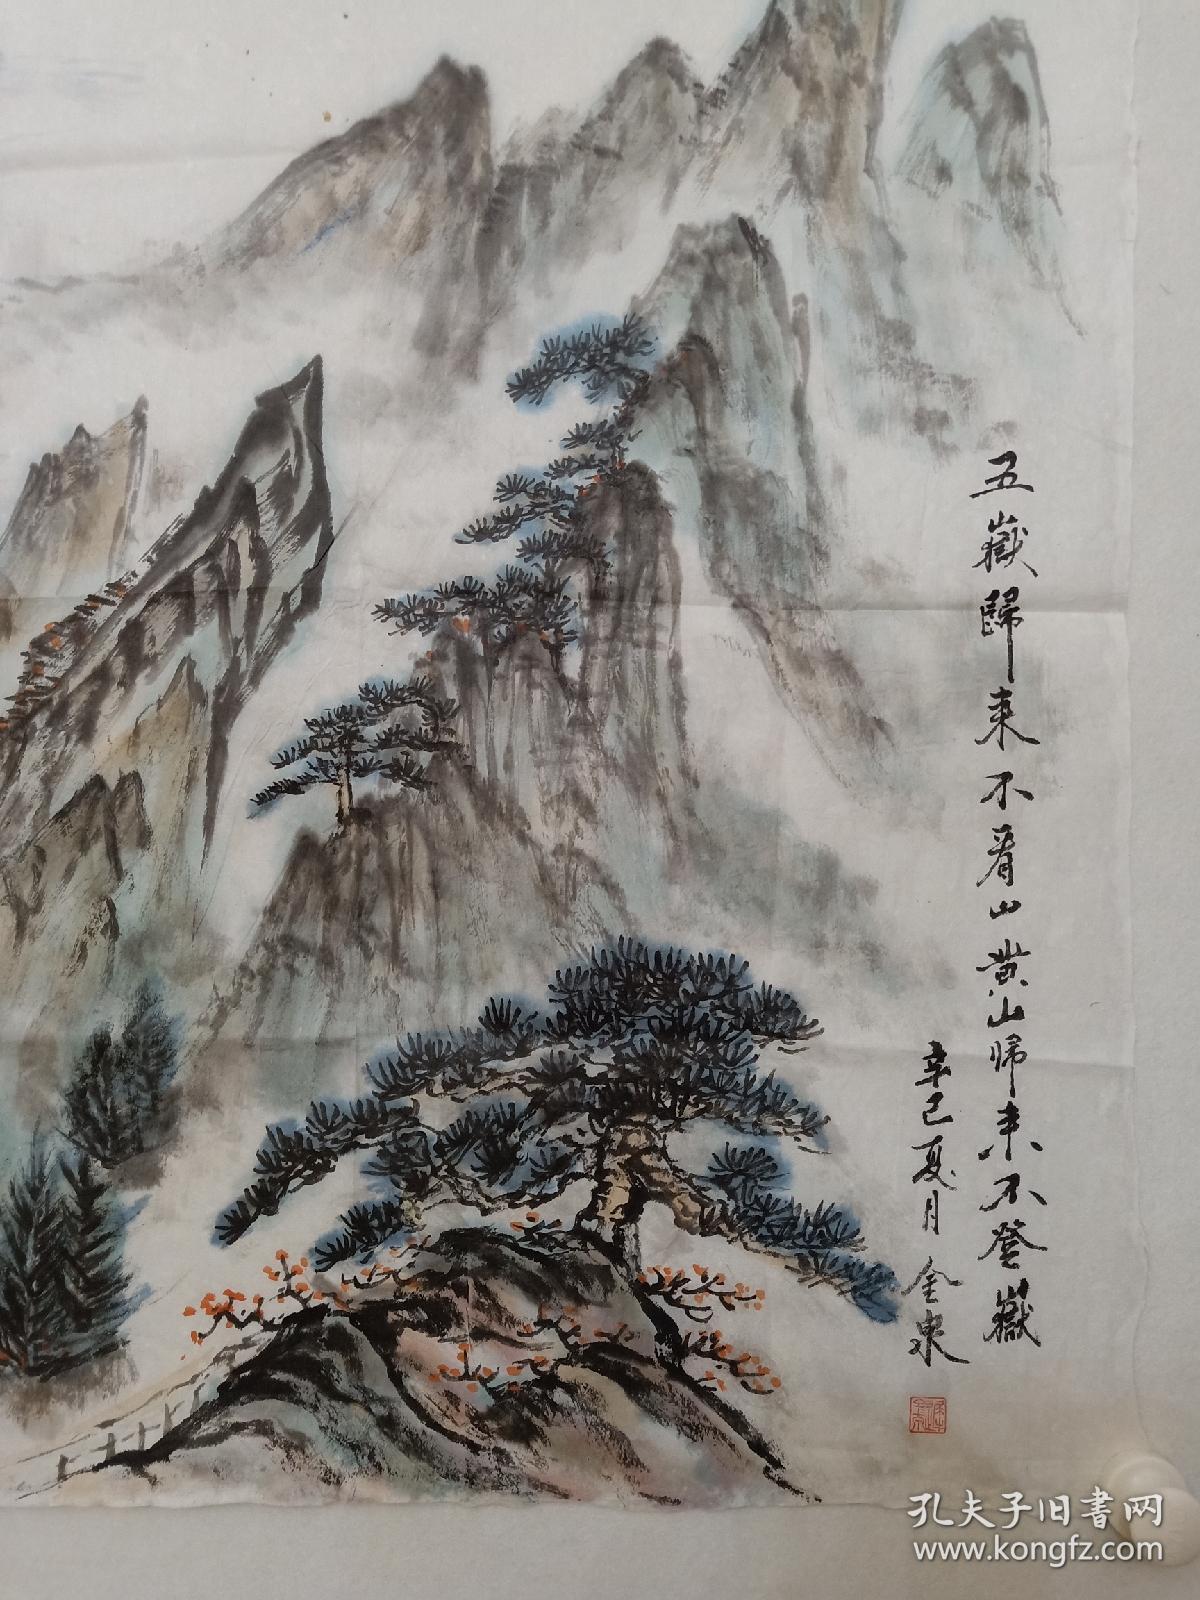 五嶽歸来不看山黄山归来不登嶽
辛巳夏月金泉
孔夫子旧书网
www.kongfz.com